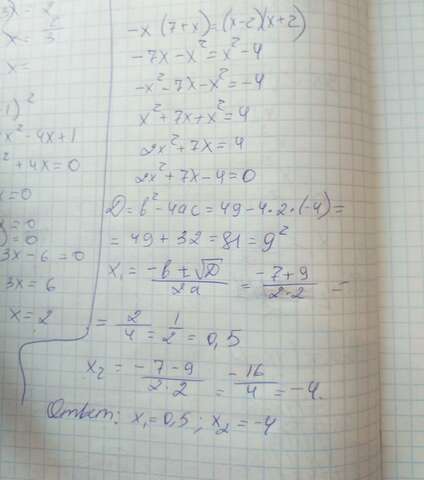 3) x = 2
x = 2/3
x =
1)²
x² - 4x + 1
² + 4x = 0
x = 0
x = 0
) = 0
3x - 6 = 0
3x = 6
x = 2
-x (7 + x) = (x - 2)(x + 2)
-7x - x² = x² - 4
-x² - 7x - x² = -4
x² + 7x + x² = 4
2x² + 7x = 4
2x² + 7x - 4 = 0
D = b² - 4ac = 49 - 4 · 2 · (-4) =
= 49 + 32 = 81 = 9²
x₁ = (-b ± √D)/2a = (-7 + 9)/(2 · 2) =
= 2/4 = 1/2 = 0,5
x₂ = (-7 - 9)/(2 · 2) = -16/4 = -4.
Ответ: x₁ = 0,5 ; x₂ = -4